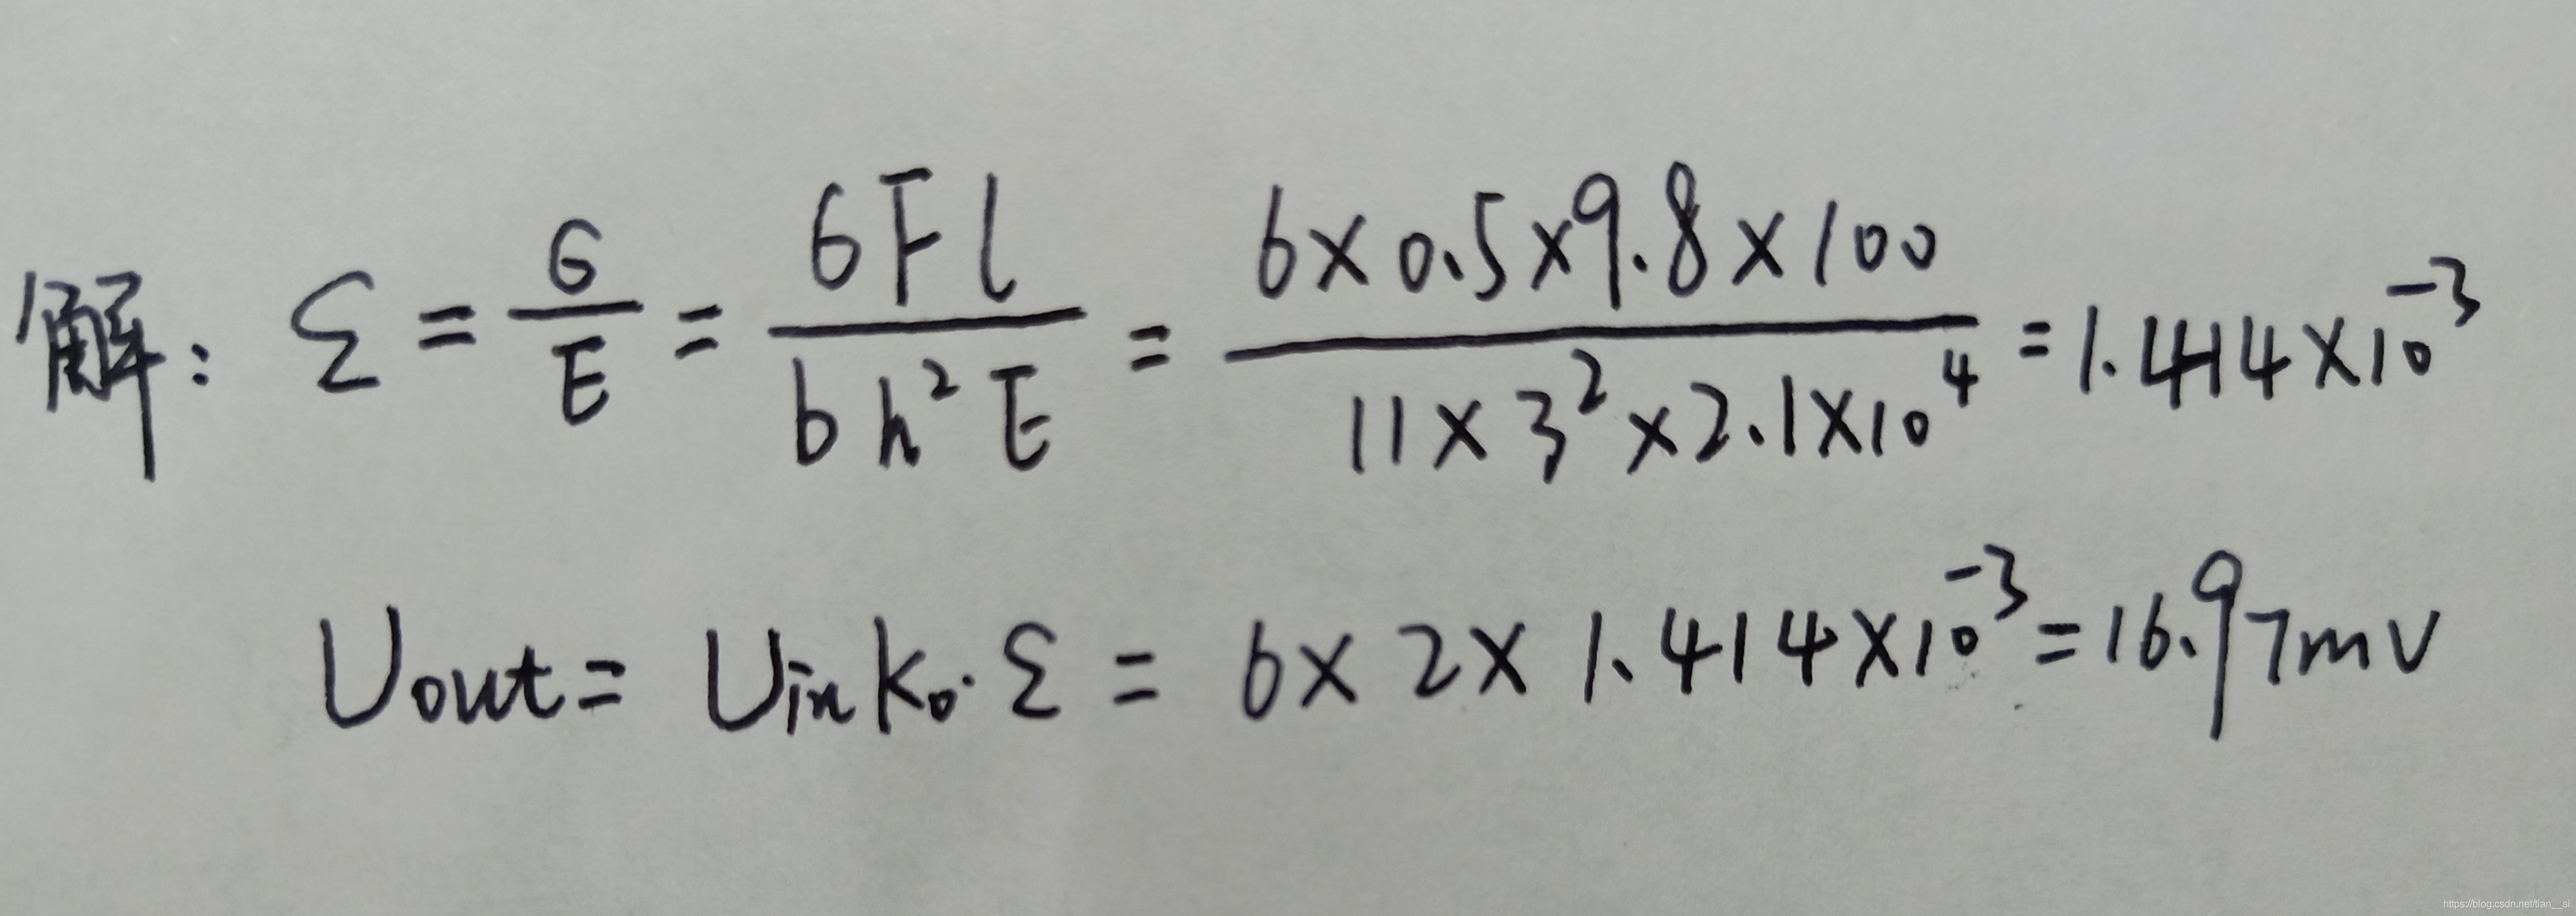 解: ε = σ/E = 6Fl/bh²E = 6×0.5×9.8×100/11×3²×2.1×10⁴ = 1.414×10⁻³
Uout = Uin K₀·ε = 6×2×1.414×10⁻³ = 16.97mV
https://blog.csdn.net/tian__si